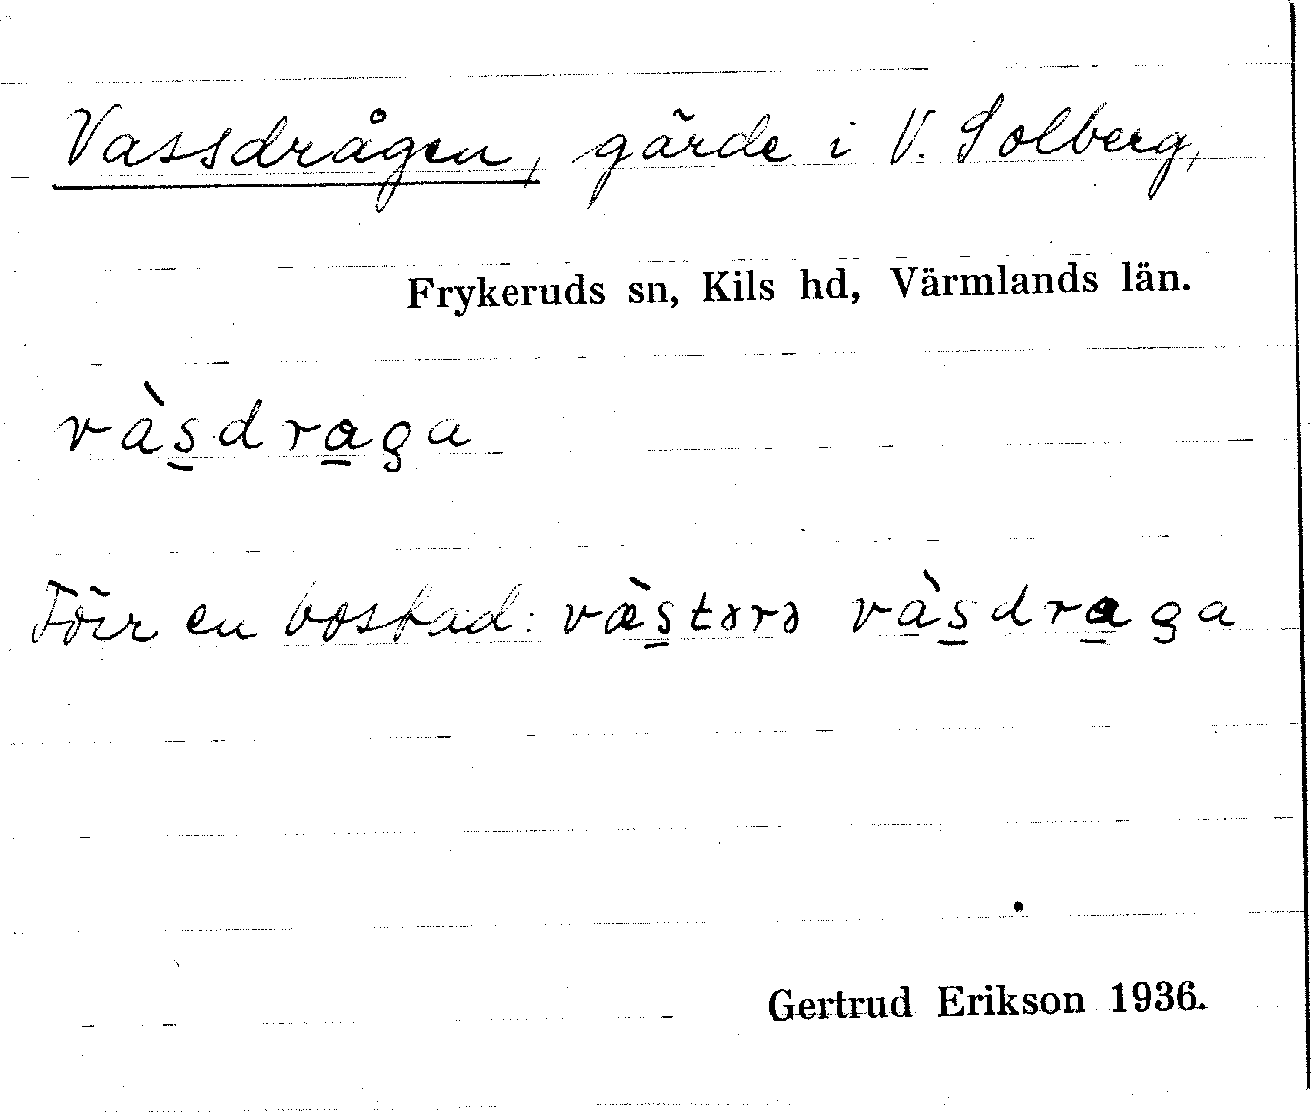 Vassdrågen, gärde i V. Solberg,
Frykeruds sn, Kils hd, Värmlands län.
vàs̲dra̲ga
Förr en bostad: væ̀s̲tərə vàs̲dra̲ga
Gertrud Erikson 1936.